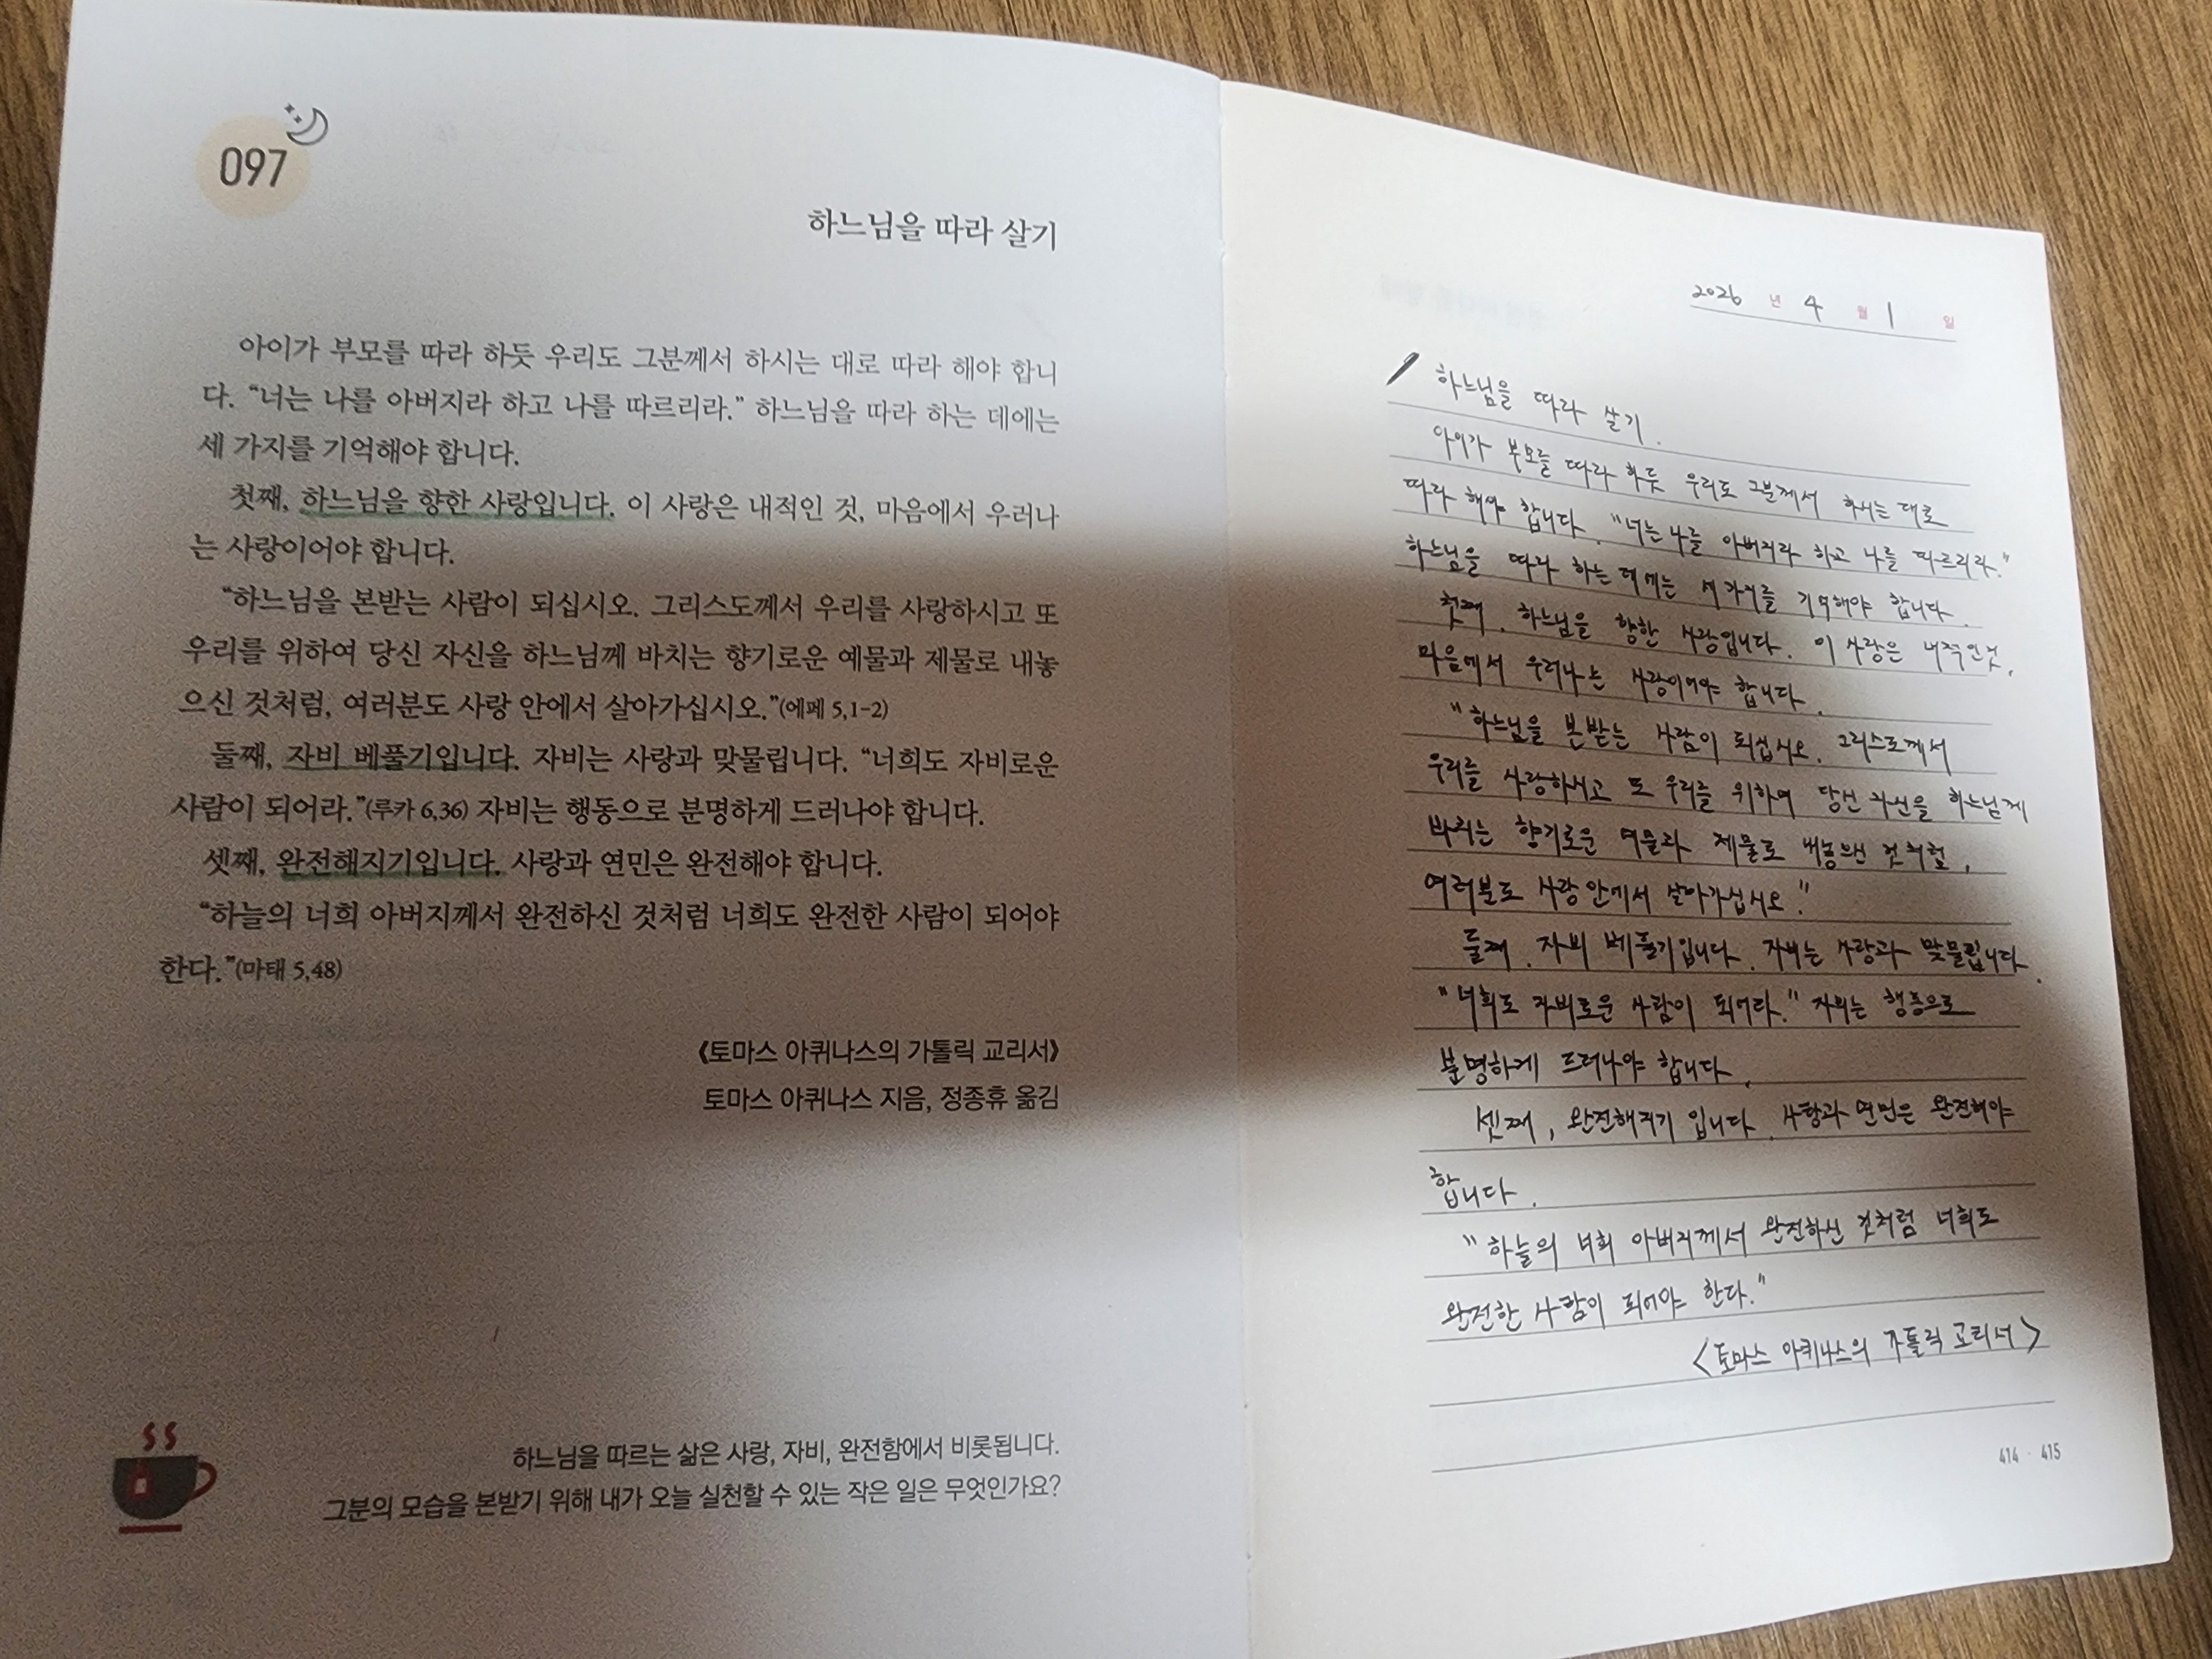 097
하느님을 따라 살기
아이가 부모를 따라 하듯 우리도 그분께서 하시는 대로 따라 해야 합니
다. “너는 나를 아버지라 하고 나를 따르리라.” 하느님을 따라 하는 데에는
세 가지를 기억해야 합니다.
첫째, 하느님을 향한 사랑입니다. 이 사랑은 내적인 것, 마음에서 우러나
는 사랑이어야 합니다.
“하느님을 본받는 사람이 되십시오. 그리스도께서 우리를 사랑하시고 또
우리를 위하여 당신 자신을 하느님께 바치는 향기로운 예물과 제물로 내놓
으신 것처럼, 여러분도 사랑 안에서 살아가십시오.”(에페 5,1-2)
둘째, 자비 베풀기입니다. 자비는 사랑과 맞물립니다. “너희도 자비로운
사람이 되어라.”(루카 6,36) 자비는 행동으로 분명하게 드러나야 합니다.
셋째, 완전해지기입니다. 사랑과 연민은 완전해야 합니다.
“하늘의 너희 아버지께서 완전하신 것처럼 너희도 완전한 사람이 되어야
한다.”(마태 5,48)
《토마스 아퀴나스의 가톨릭 교리서》
토마스 아퀴나스 지음, 정종휴 옮김
하느님을 따르는 삶은 사랑, 자비, 완전함에서 비롯됩니다.
그분의 모습을 본받기 위해 내가 오늘 실천할 수 있는 작은 일은 무엇인가요?
2026 년 4 월 1 일
하느님을 따라 살기.
아이가 부모를 따라 하듯 우리도 그분께서 하시는 대로
따라 해야 합니다. “너는 나를 아버지라 하고 나를 따르리라.”
하느님을 따라 하는 데에는 세 가지를 기억해야 합니다.
첫째, 하느님을 향한 사랑입니다. 이 사랑은 내적인 것,
마음에서 우러나는 사랑이어야 합니다.
“하느님을 본받는 사람이 되십시오. 그리스도께서
우리를 사랑하시고 또 우리를 위하여 당신 자신을 하느님께
바치는 향기로운 예물과 제물로 내놓으신 것처럼,
여러분도 사랑 안에서 살아가십시오.”
둘째, 자비 베풀기입니다. 자비는 사랑과 맞물립니다.
“너희도 자비로운 사람이 되어라.” 자비는 행동으로
분명하게 드러나야 합니다.
셋째, 완전해지기 입니다. 사랑과 연민은 완전해야
합니다.
“하늘의 너희 아버지께서 완전하신 것처럼 너희도
완전한 사람이 되어야 한다.”
<토마스 아퀴나스의 가톨릭 교리서>
414 · 415